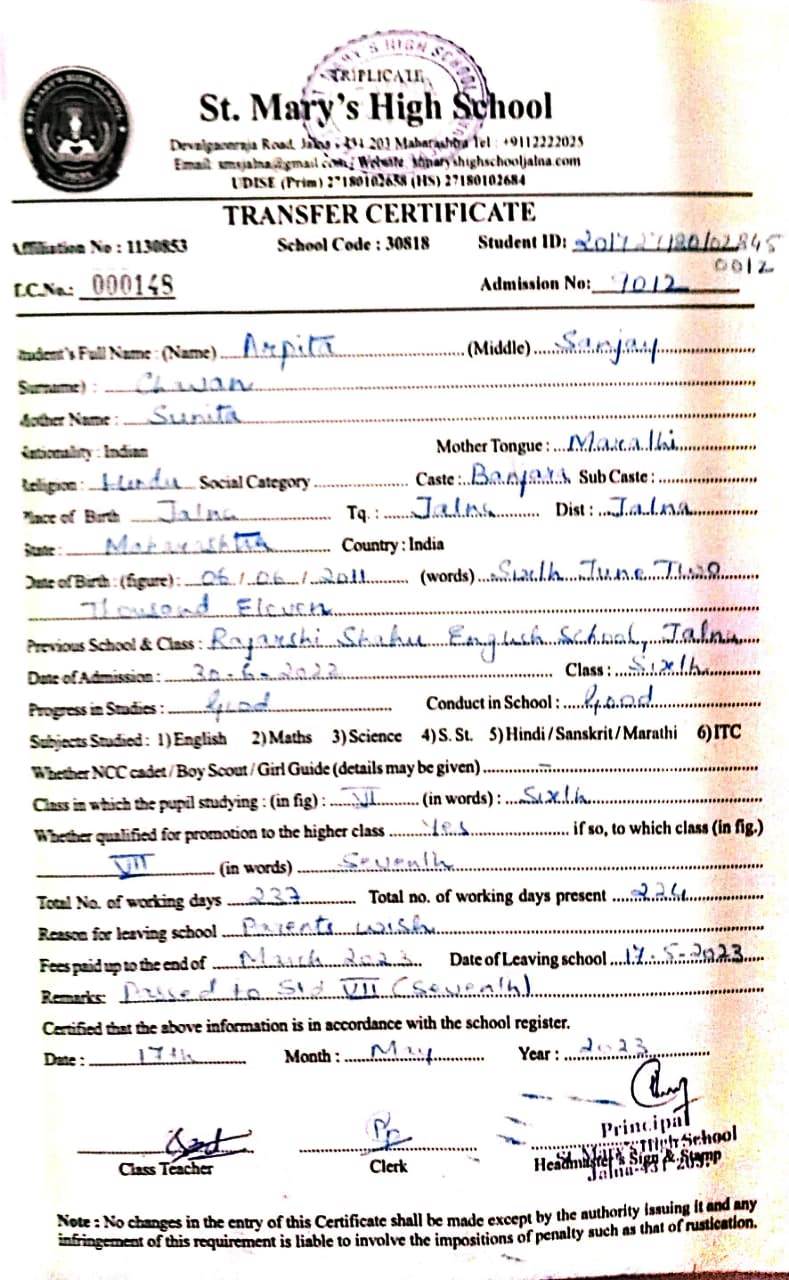 TRIPLICATE
St. Mary's High School
Devalgaonraja Road, Jalna - 431 203 Maharashtra Tel : +9112222025
UDISE (Prim) 27180102658 (HS) 27180102684
TRANSFER CERTIFICATE
Affiliation No : 1130853 School Code : 30818 Student ID:
0012
T.C.No.: 000148 Admission No: 7012
Student's Full Name : (Name) Arpita (Middle) Sanjay
Surname) : Chavan
Mother Name : Sunita
Nationality : Indian Mother Tongue : Marathi
Religion : Hindu Social Category Caste : Banjara Sub Caste :
Place of Birth Jalna Tq. : Jalna Dist : Jalna
State : Maharashtra Country : India
Date of Birth : (figure) : 06/06/2011 (words) Sixth June Two
Thousand Eleven
Previous School & Class : Rajarshi Shahu English School, Jalna
Date of Admission : 30-6-2022 Class : Sixth
Progress in Studies : Good Conduct in School : Good
Subjects Studied : 1) English 2) Maths 3) Science 4) S. St. 5) Hindi / Sanskrit / Marathi 6) ITC
Whether NCC cadet / Boy Scout / Girl Guide (details may be given) –
Class in which the pupil studying : (in fig) : VI (in words) : Sixth
Whether qualified for promotion to the higher class Yes if so, to which class (in fig.)
VII (in words) Seventh
Total No. of working days 237 Total no. of working days present
Reason for leaving school Parents wish
Fees paid up to the end of March 2023 Date of Leaving school 17-5-2023
Remarks: Passed to Std VII (Seventh)
Certified that the above information is in accordance with the school register.
Date : 17th Month : May Year : 2023
Principal
St. Mary's High School
Class Teacher Clerk Headmaster's Sign & Stamp
Jalna-431 203.
Note : No changes in the entry of this Certificate shall be made except by the authority issuing it and any
infringement of this requirement is liable to involve the impositions of penalty such as that of rustication.